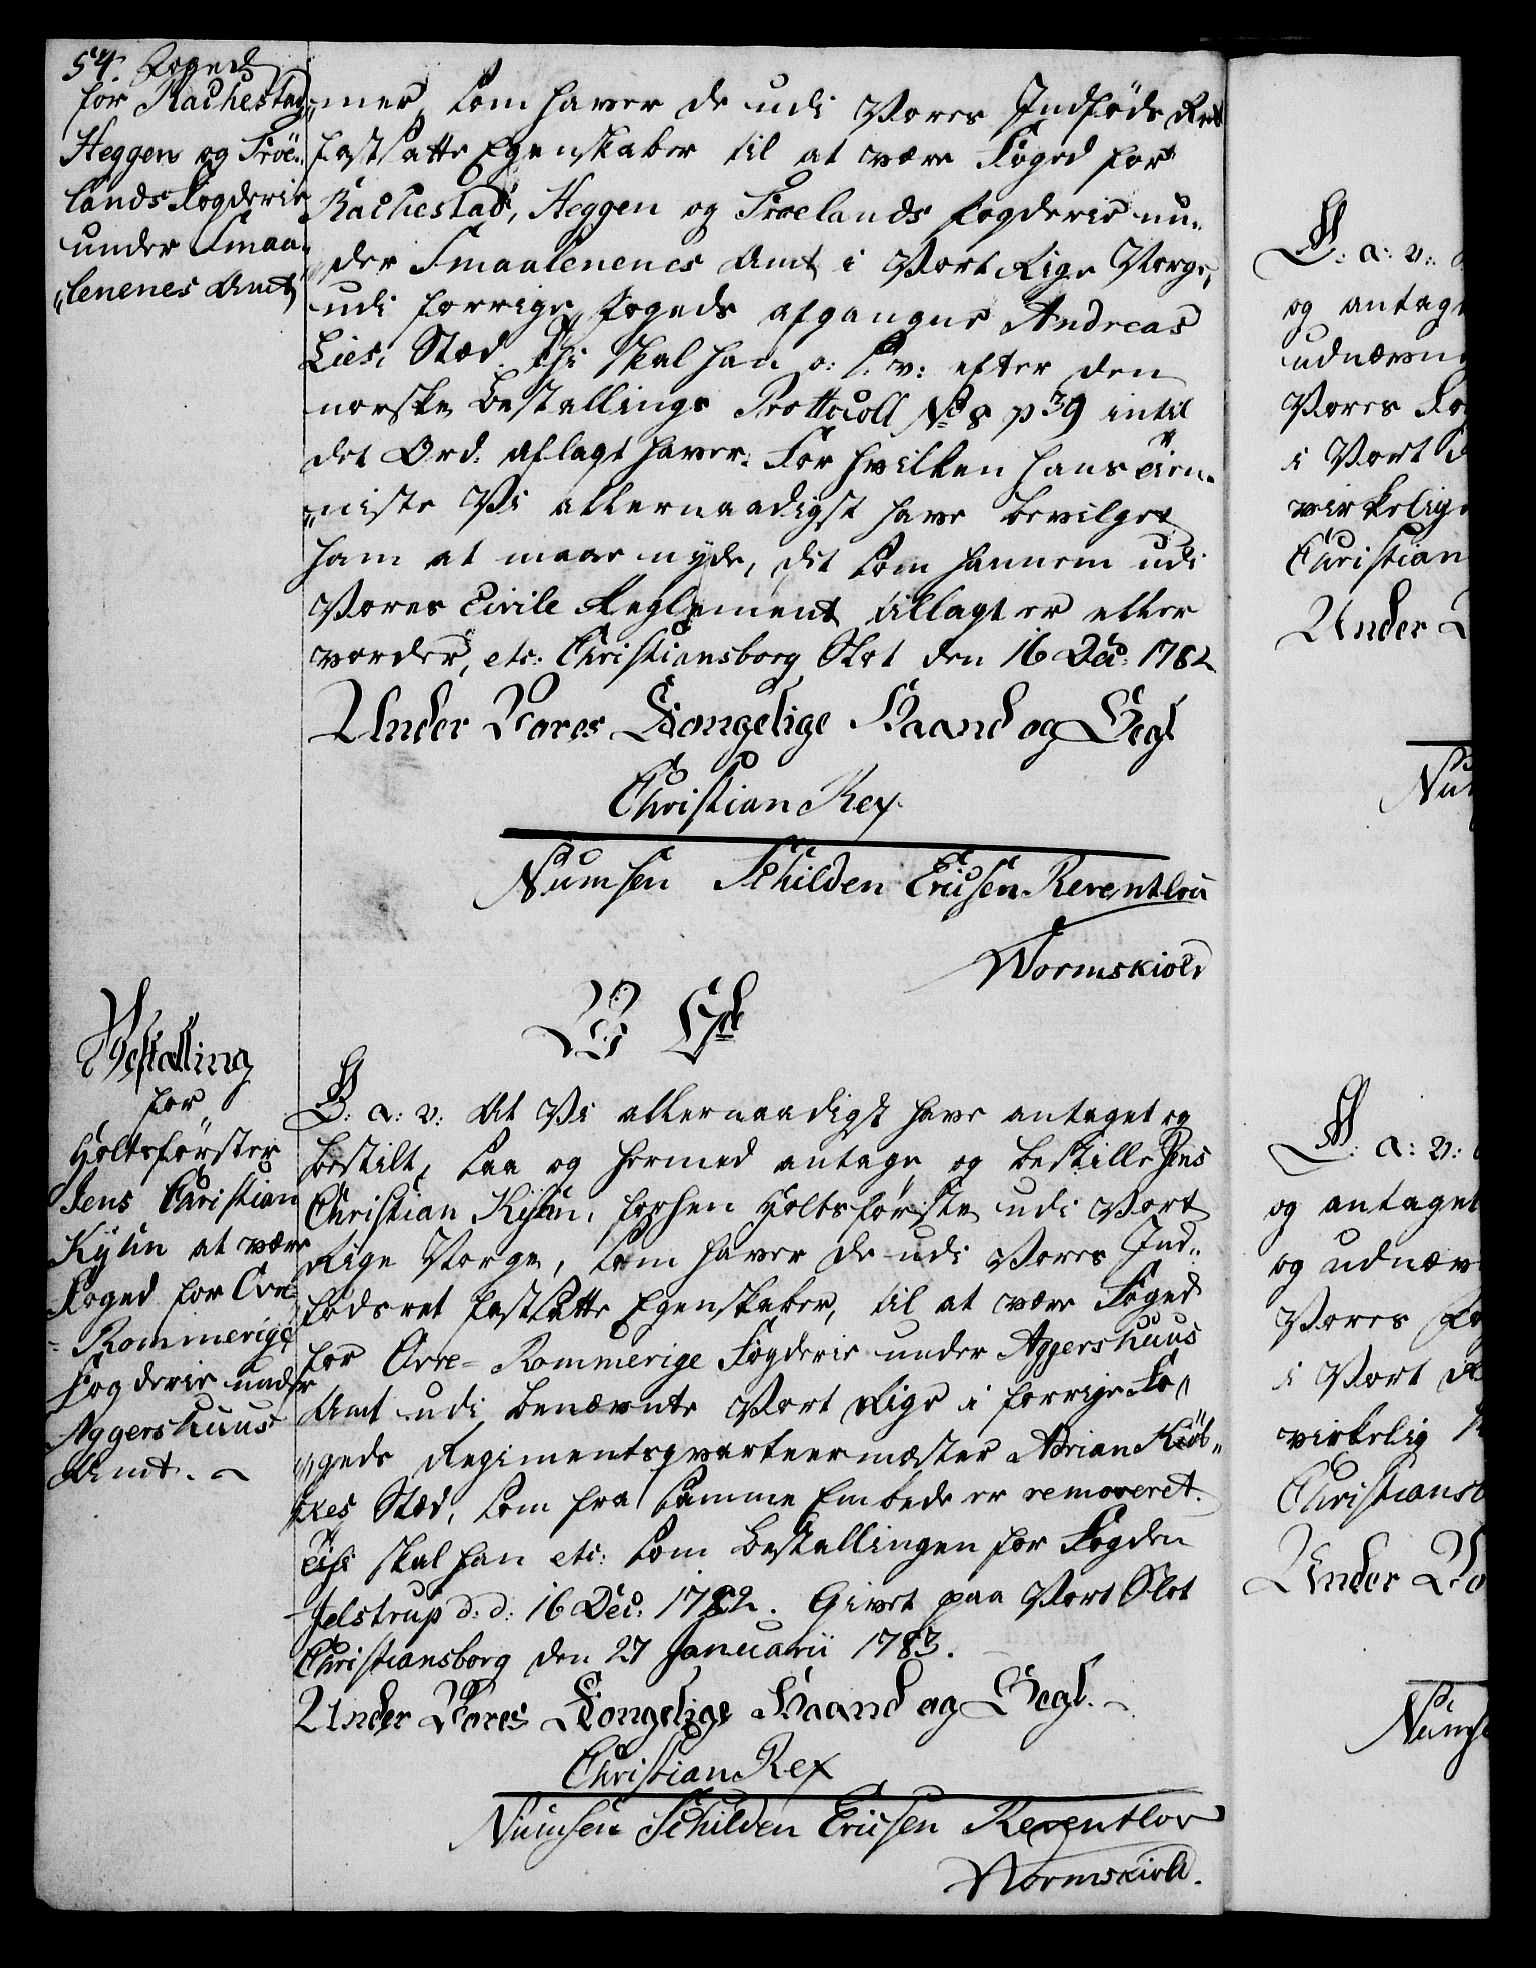 54. Foged
for Rachestad
Heggen og Fröe-
lands Fogderie
under Smaa-
„lenenes Amt
mer, som haver de udi Vores Indföds Ret
fastsatte Egenskaber til at være Foged for
Rachestad, Heggen og Fröelands Fogderie un-
„der Smaalenenes Amt i Vort Rige Norge,
udi forrige Fogeds afgangne Andreas
Lies Stæd. Thi skal han o: s: v: efter den
norske Bestallings Prottocoll No 8 p 39 intil
det Ord: aflagt haver. For hvilken hans tien-
„niste Vi allernaadigst have bevilget
ham at maae nyde, dit som hannem udi
Vores Civile Reglement tillagt er eller
vorder, etc: Christiansborg Slot den 16 Dec: 1782
Under Vores Kongelige Haand og Segl
Christian Rex.
Numsen Schilden Ericsen Reventlou
Wormskiold
Bestalling
for
Holtsförster
Jens Christian
Kyhn at være
Foged for Ovre
= Rommerige
Fogderie under
Aggershuus
Amt.
V C 7de
G: a: v: At Vi allernaadigst have antaget og
bestilt, saa og hermed antage og bestille Jens
Christian Kyhn, forhen Holtsförster udi Vort
Rige Norge, som haver de udi Vores Ind-
födsret fastsatte Egenskaber, til at være Foged
for Ovre= Rommerige Fogderie under Aggershuus
Amt udi benævnte Vort Rige i forrige Fo-
„geds Regimentsqvarteermæster Adrian Kiöb-
kes Stæd, som fra samme Embede er removeret.
Thi skal han etc: som Bestallingen for Fogden
Jelstrup d: d: 16 Dec: 1782. Givet paa Vort Slot
Christiansborg den 27 Januarii 1783.
Under Vores Kongelige Haand og Segl.
Christian Rex
Numsen Schilden Ericsen Reventlov
Wormskiold.
G: a: v:
og antag
udnævn
Vores Fo
i Vort
virkelig
Christian
Under
Num
G: a: v:
og antaget
og udnæv
Vores Fo
i Vort R
virkelig
Christiansb
Under Vo
Nums